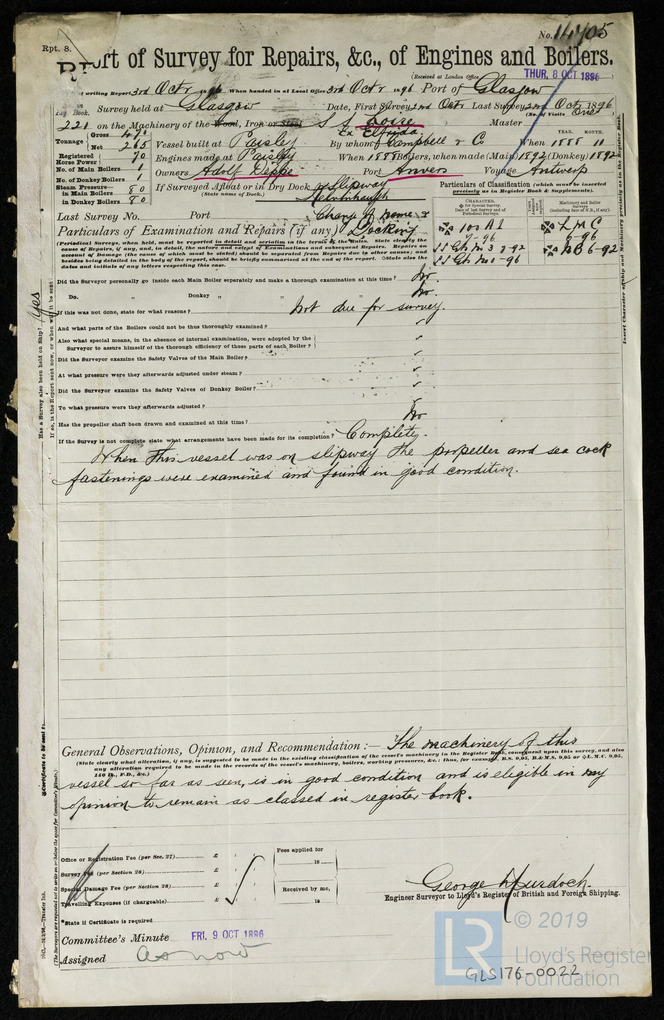 Rpt. 8.
No. 14705
Report of Survey for Repairs, &c., of Engines and Boilers.
(Received at London Office THUR. 8 OCT 1896
writing Report 3rd Octr 1896 When handed in at Local Office 3rd Octr 1896 Port of Glasgow
Survey held at Glasgow Date, First Survey 2nd Oct Last Survey 2nd Oct 1896
Book. (No. of Visits One)
221 on the Machinery of the Wood, Iron or Steel S S Loire Master
Ex Elfrida
Tonnage Gross 470 Net 265 Vessel built at Paisley By whom Campbell & Co When 1888 11
YEAR. MONTH.
Registered Horse Power 70 Engines made at Paisley When 1888 Boilers, when made (Main) 1892 (Donkey) 1892
No. of Main Boilers 1 Owners Adolf Deppe Port Anvers Voyage Antwerp
No. of Donkey Boilers 1
Steam Pressure in Main Boilers 80 If Surveyed Afloat or in Dry Dock Slipway
(State name of Dock.)
in Donkey Boilers 80
Particulars of Classification (which must be inserted precisely as in Register Book & Supplements).
Last Survey No. Port Change of name &
Particulars of Examination and Repairs (if any) Docking
(Periodical Surveys, when held, must be reported in detail and seriatim in the terms of the Rules. State clearly the
cause of Repairs, if any, and, in detail, the nature and extent of Examinations and subsequent Repairs. Repairs on
account of Damage (the cause of which must be stated) should be separated from Repairs due to other causes; and
besides being detailed in the body of the report, should be briefly summarised at the end of the report. State also the
dates and initials of any letters respecting this case.
CHARACTER.
✠ for Special Survey.
Date of Last Survey and of
Periodical Surveys.
Machinery and Boiler
Surveys
(including date of N.B., if any).
100 A1
7-96
SS Gls No 3 7-92
SS Gls No 1-96
LMC
6-96
NB 6-92
Did the Surveyor personally go inside each Main Boiler separately and make a thorough examination at this time? No.
Do. " Donkey " " " " No.
If this was not done, state for what reasons? Not due for survey.
And what parts of the Boilers could not be thus thoroughly examined?
Also what special means, in the absence of internal examination, were adopted by the
Surveyor to assure himself of the thorough efficiency of these parts of each Boiler?
Did the Surveyor examine the Safety Valves of the Main Boiler?
At what pressure were they afterwards adjusted under steam?
Did the Surveyor examine the Safety Valves of Donkey Boiler?
To what pressure were they afterwards adjusted?
Has the propeller shaft been drawn and examined at this time? No
If the Survey is not complete state what arrangements have been made for its completion? Complete.
When this vessel was on slipway the propeller and sea cock
fastenings were examined and found in good condition.
General Observations, Opinion, and Recommendation:— The machinery of this
(State clearly what alteration, if any, is suggested to be made in the existing classification of the vessel's machinery in the Register Book, consequent upon this survey, and also
any alteration required to be made in the records of the vessel's machinery, boilers, working pressures, &c.; thus, for example, B.S. 9,95, B.&M.S. 9,95 or ✠L.M.C. 9,95,
140 lb., F.D., &c.)
vessel so far as seen, is in good condition and is eligible in my
opinion to remain as classed in register book.
Office or Registration Fee (per Sec. 27) £
Survey Fee (per Section 28) £
Special Damage Fee (per Section 28) £
Travelling Expenses (if chargeable) £
Fees applied for
18
Received by me,
18
George Murdoch.
Engineer Surveyor to Lloyd's Register of British and Foreign Shipping.
*State if Certificate is required
Committee's Minute FRI. 9 OCT 1896
Assigned as now
Has a Survey also been held on Ship? Yes
© 2019
Lloyd's Register
Foundation
LR
GLS176-0022